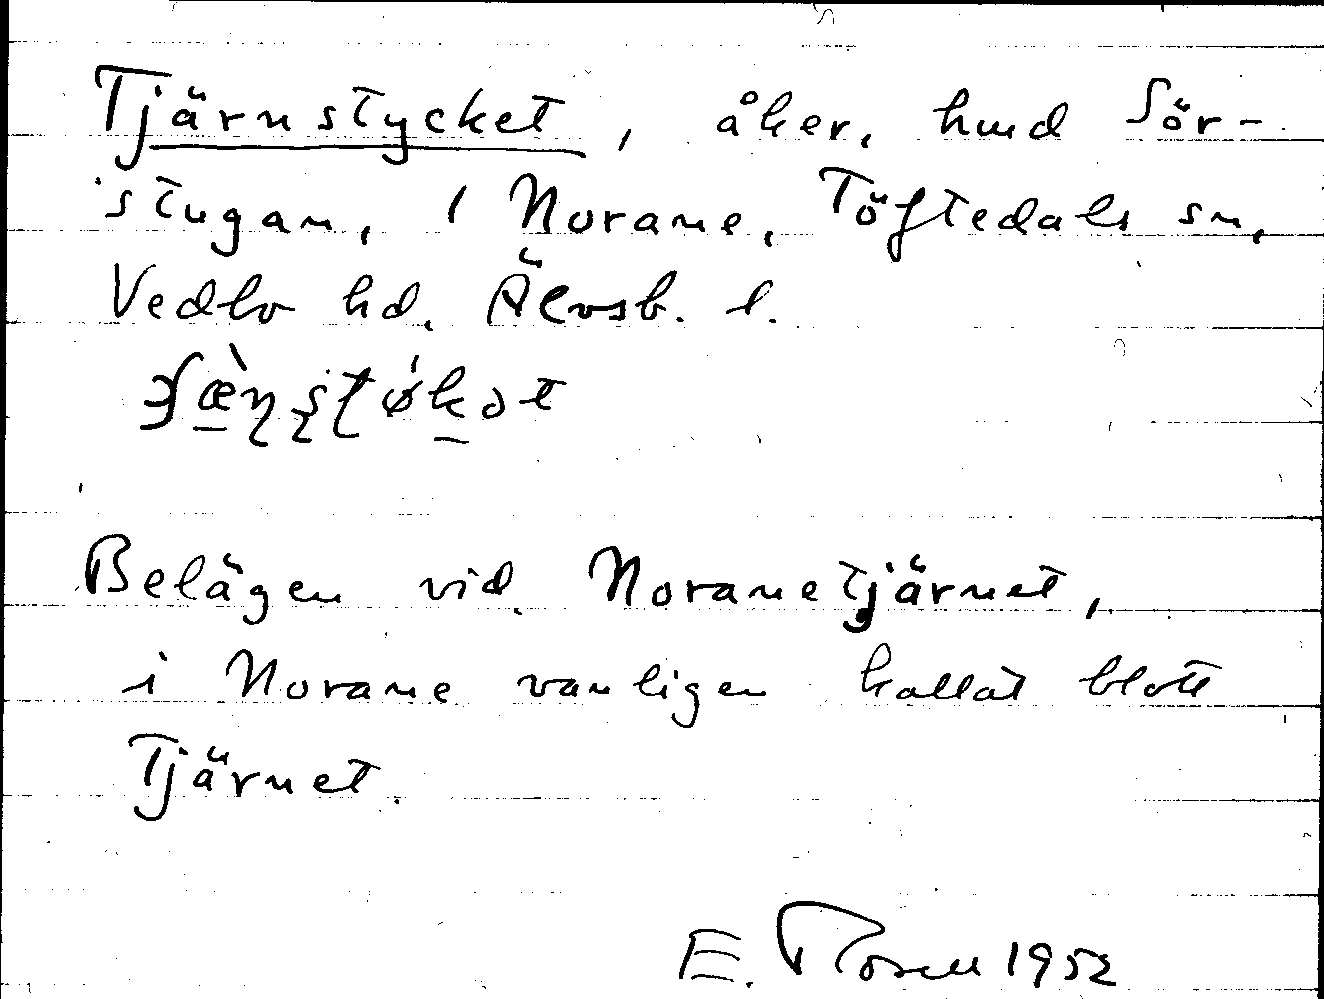 Tjärnstycket, åker, hmd Sör-
stugan, 1 Norane, Töftedals sn,
Vedbo hd. Älvsb. l.
Belägen vid Noranetjärnet,
i Norane vanligen kallat blott
Tjärnet.
E. Rosell 1952